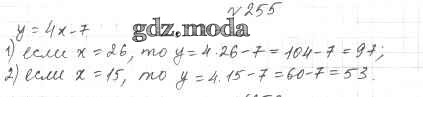 №255
y = 4x - 7
gdz.moda
1) если x = 26, то y = 4·26 - 7 = 104 - 7 = 97;
2) если x = 15, то y = 4·15 - 7 = 60 - 7 = 53.